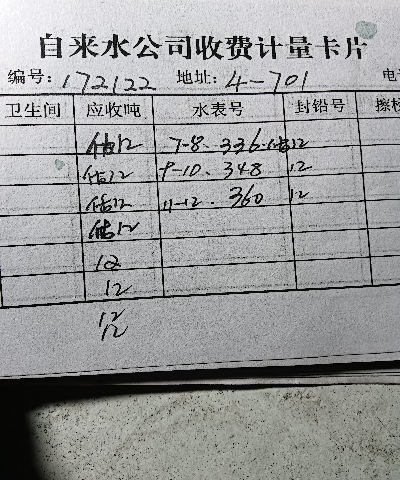 自来水公司收费计量卡片
编号: 172122 地址: 4-701 电
卫生间 应收吨 水表号 封铅号 擦
估12 7-8. 336. 估12
估12 9-10. 348 12
估12 11-12. 360 12
估12
12
12
12
12